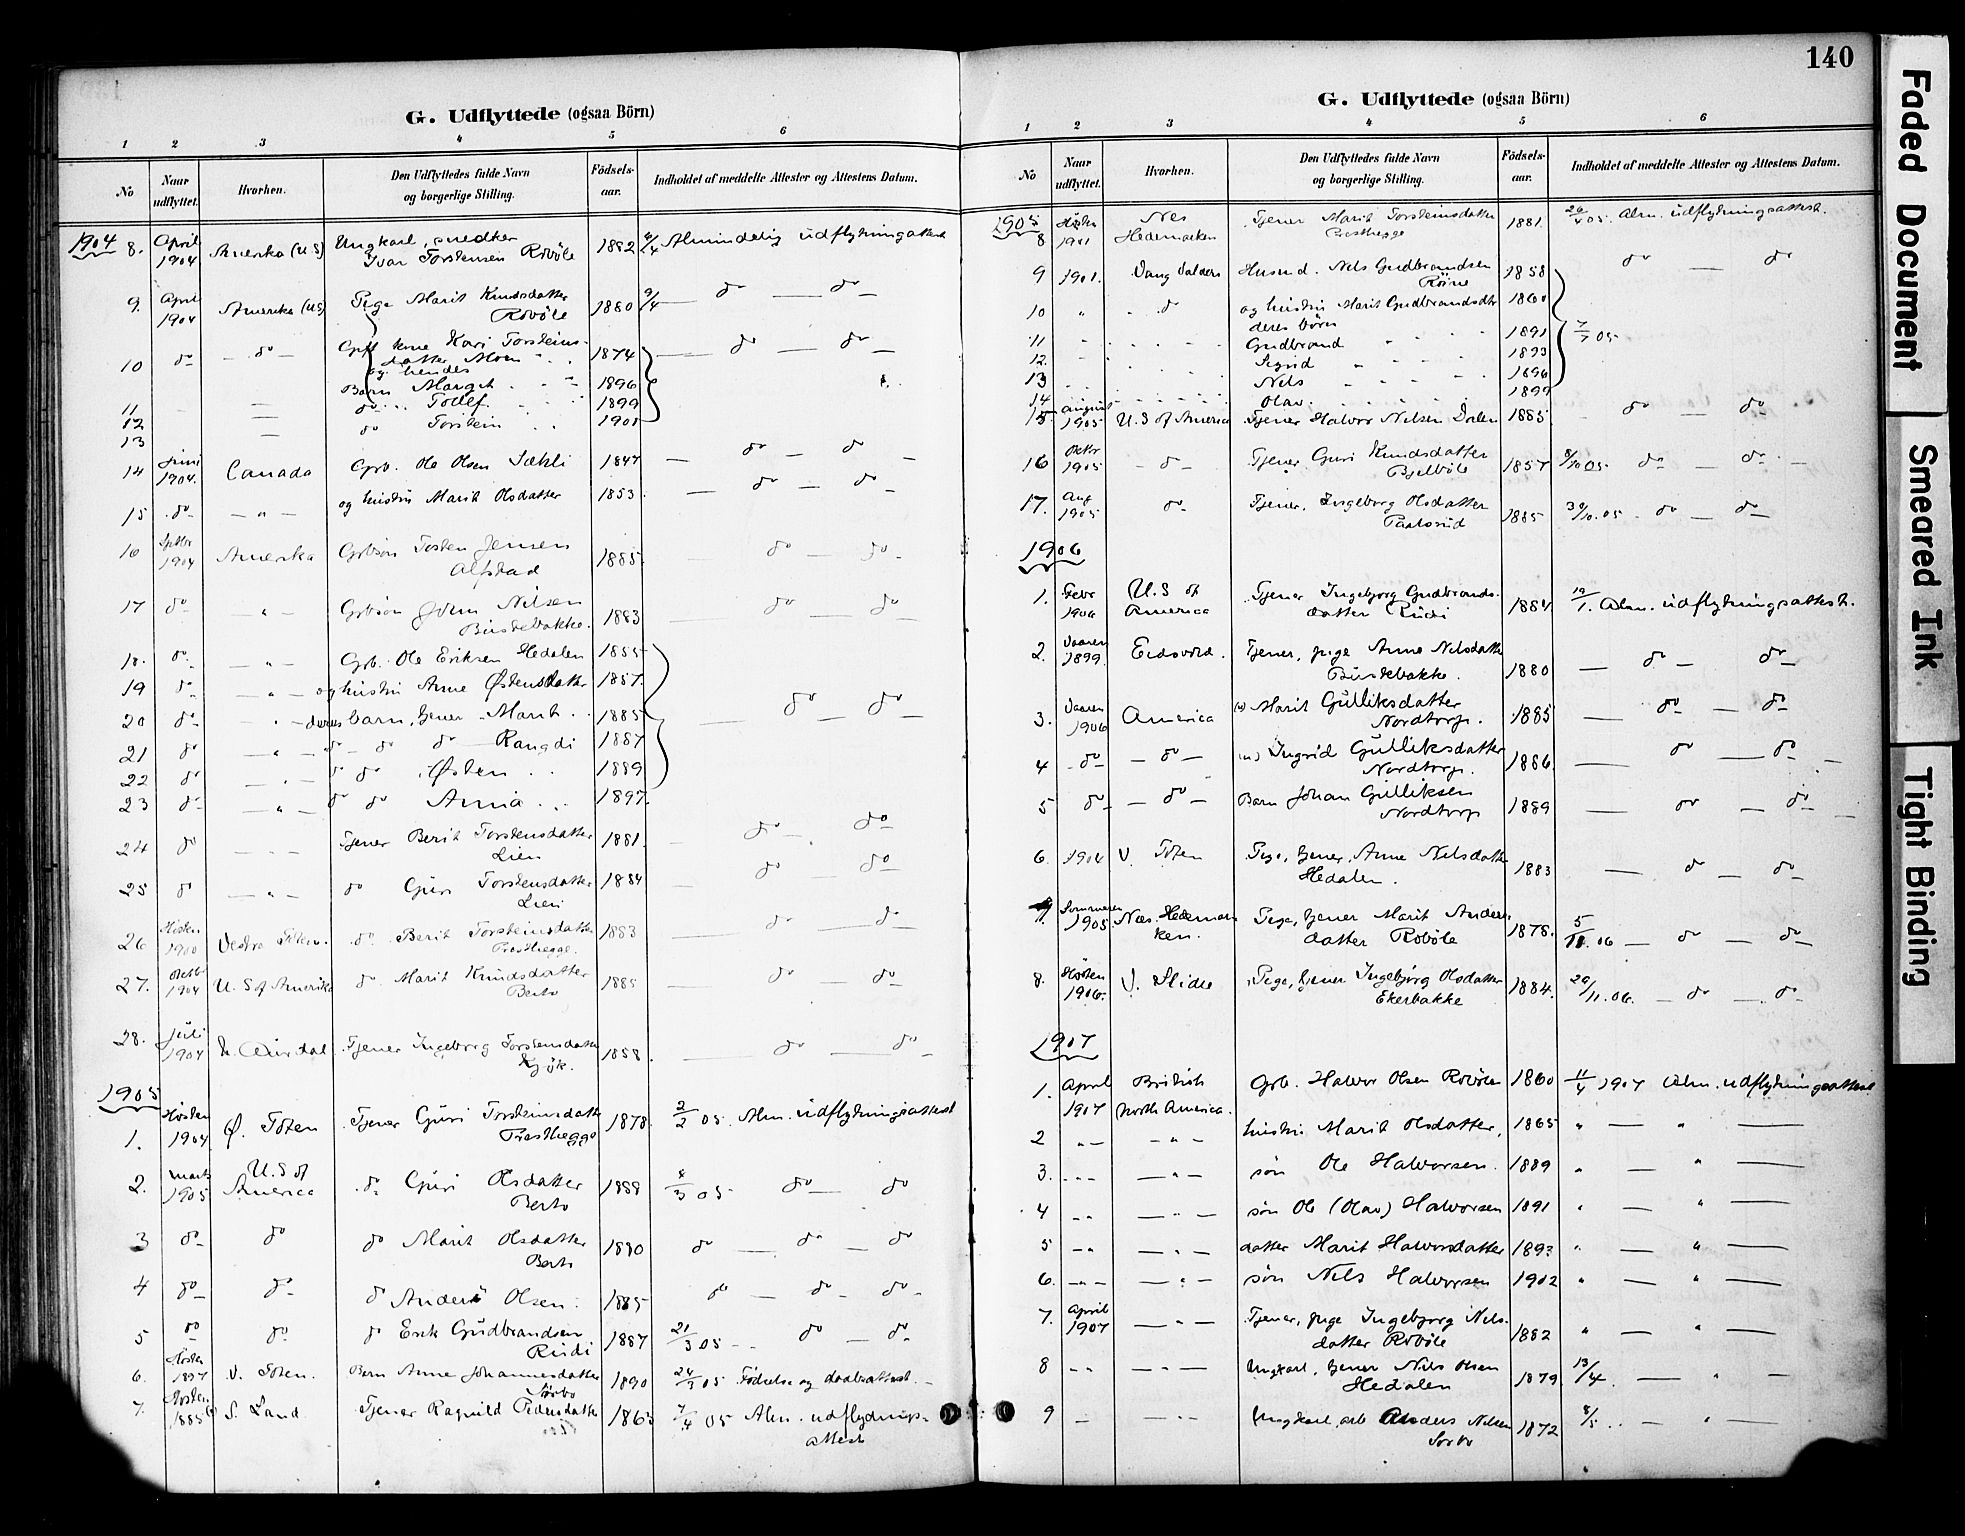 140
G. Udflyttede (ogsaa Börn)
1 2 3 4 5 6
No
Naar udflyttet.
Hvorhen.
Den Udflyttedes fulde Navn og borgerlige Stilling.
Födsels-aar.
Indholdet af meddelte Attester og Attestens Datum.
1904 8. April 1904 Amerika (U S) Ungkarl, snedker 1882 9/4 Almindelig udflytningsattest
Ivar Torstensen Robøle
9. April 1904 Amerika (US) Pige Marit Knudsdatter 1880 9/4 — do — do —
Robøle
10 do — do — Kari Torsteins- 1874 — do — do —
datter
og hendes
11 Børn Margit 1896
12 do Tollef 1899
13 do Torstein 1901
14 Juni 1904. Canada Grb. Ole Olsen 1847 — do — do —
15 do — " — og hustru Marit Olsdatter 1853. — do — do —
16 Septbr 1904 Amerika Grbsøn Tosten Jensen 1885. do — do —
Alfstad
17 do — " — Grbsøn Nilsen 1883 do — do
Bustebakke.
18. do — " — Grb. Ole Eriksen Hedalen 1855
19 do — " — og hustru Anne Østensdatter 1857.
20 do — " — deres barn, tjener Marit 1885 — do — do —
21 do — " — do — do do — Rangdi 1887
22 do — " — do do Østen 1889
23 do — " — do do Anna 1897.
24 do — " — Tjener Berit Torstensdatter 1881. do — do
Lien
25 do — " — do Guri Torstensdatter 1884 — do — do
Lien
26 Høsten 1900 Vestre Toten. do Berit Torsteinsdatter 1883 — do — do
Præsthegge.
27. Oktbr 1904 U. S of Amerika do Marit Knudsdatter 1885 — do — do
Berto
28. Juli 1904 Tjener Ingeborg Torstensdatter 1858. — do — do
Kjøk.
1905
1. Høsten 1904 Ø. Toten Tjener Guri Torsteinsdatter 1878. 2/2 05. Alm. udflytningsattest
Præsthegge
2. Marts 1905 U.S of America do Guri Olsdatter 1888 8/3 05 do — do
Berto
3 do do do Marit Olsdatter 1890 do — do — do
Berto
4 do do do Anders Olsen 1885 do — do — do
5 do do do Erik Gudbrandsen 1887 21/3 05 do — do
Rudi
6. Høsten 1897 V. Toten. Barn Anne Johannesdatter 1890 24/3 05 Fødsels og daabsattest. —
Sørbo
7. Høsten 1885 S. Land Tjener Ragnild Pedersdatter 1863 7/4 05 Alm. udflytnings-
attest
G. Udflyttede (ogsaa Börn)
1 2 3 4 5 6
No
Naar udflyttet.
Hvorhen.
Den Udflyttedes fulde Navn og borgerlige Stilling.
Födsels-aar.
Indholdet af meddelte Attester og Attestens Datum.
1905
8 Høsten 1901 Nes Hedemarken Tjener Marit Torsteinsdatter 1881. 26/4 05. Alm. udflytningsattest.
Præsthegge
9 1901. Vang Valders Husmd. Nels Gudbrandsen 1858 do — do
10 " do og hustru Marit Gudbrandsdtr 1860
deres børn
11 Gudbrand 1891 7/7 05
12. Sigrid 1893
13 Nels 1896
14 Olav 1899
15 August 1905 U.S of America Tjener Halvor Nilsen Dalen 1885 — do — do
16 Oktbr 1905 — do — Tjener Guri Knudsdatter 1857 8/10 05 do — do —
Bjelbøle
17. Aug 1905 do Tjener, Ingeborg Olsdatter 1885 30/10. 05 — do — do
Paalsrud
1906
1. Febr 1906 U.S of America Tjener Ingebjørg Gudbrands- 1884 19/1. Alm. udflytningsattest.
datter Rudi
2. Vaaren 1899. Eidsvold. Tjener, pige Anne Nilsdatter 1880 — do — do
Bustebakke.
3. Vaaren 1906 America Marit Gulliksdatter 1885 — do — do
Nordtorp.
4 do — do — Ingrid Gulliksdatter 1886 — do — do —
Nordtorp.
5 do — do — Barn Johan Gulliksen 1889 — do — do —
Nordtorp
6. 1904 V. Toten Pige, tjener, Anne Nilsdatter 1883 — do — do
Hedalen.
7. Sommeren 1905. Næs. Hedemarken. Pige, tjener Marit Anders- 1878. 5/11. 06 — do — do
datter Robøle
8. Høsten 1906. V. Slidre Pige, tjener Ingebjørg Olsdatter 1884. 20/11. 06. — do — do
Ekerbakke
1907
1. April 1907 British North America. Grb. Halvor Olsen Robøle 1860 11/4 1907 Alm. udflytningsattest
2 " — " — hustru Marit Olsdatter, 1865 " — " —
3. " — " — søn Ole Halvorsen. 1889 " — " —
4 " — " — søn Ole (Olav) Halvorsen 1891 " — " —
5 " — " — datter Marit Halvorsdatter 1893 " — " —
6. " — " — søn Nils Halvorsen 1902 " — " —
7. April 1907 — " — Tjener, pige Ingebjørg Nils- 1882 " — " —
datter Robøle
8 " — " — Ungkarl, tjener Nils Olsen 1879 13/4. — " —
Hedalen
9 — — " — Ungkarl, arb Anders Nilsen 1872 8/5 .. — " —
Sørbo
Faded Document
Smeared Ink
Tight Binding